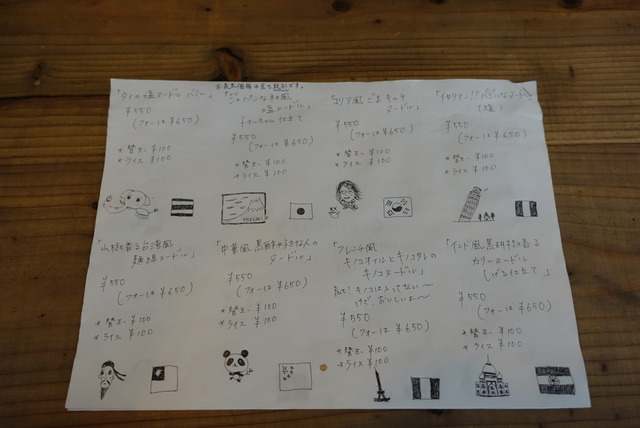 ※表示価格は全て税別です。
「タイの塩ヌードル バミー」
¥550
(フォーは¥650)
*替玉 ¥100
*ライス ¥100
「ジャパンな和風
塩ヌードル」
仕立て
¥550
(フォーは¥650)
*替玉 ¥100
*ライス ¥100
「コリア風 ごまキムチ
ヌードル」
¥550
(フォーは¥650)
*替玉 ¥100
*ライス ¥100
「イタリアン!?バジルなヌードル
(塩)
¥550
(フォーは¥650)
*替玉 ¥100
*ライス ¥100
「山椒香る台湾風
麺線ヌードル」
¥550
(フォーは¥650)
*替玉 ¥100
*ライス ¥100
「中華風 黒酢好きな人の
ヌードル」
¥550
(フォーは¥650)
*替玉 ¥100
*ライス ¥100
「フレンチ風
キノコオイルとキノコダレの
キノコヌードル」
キノコは入ってない〜
けど、おいしいよ〜
¥550
(フォーは¥650)
*替玉 ¥100
*ライス ¥100
「インド風 黒胡椒香る
カリーヌードル
しげる仕立て」
¥550
(フォーは¥650)
*替玉 ¥100
*ライス ¥100